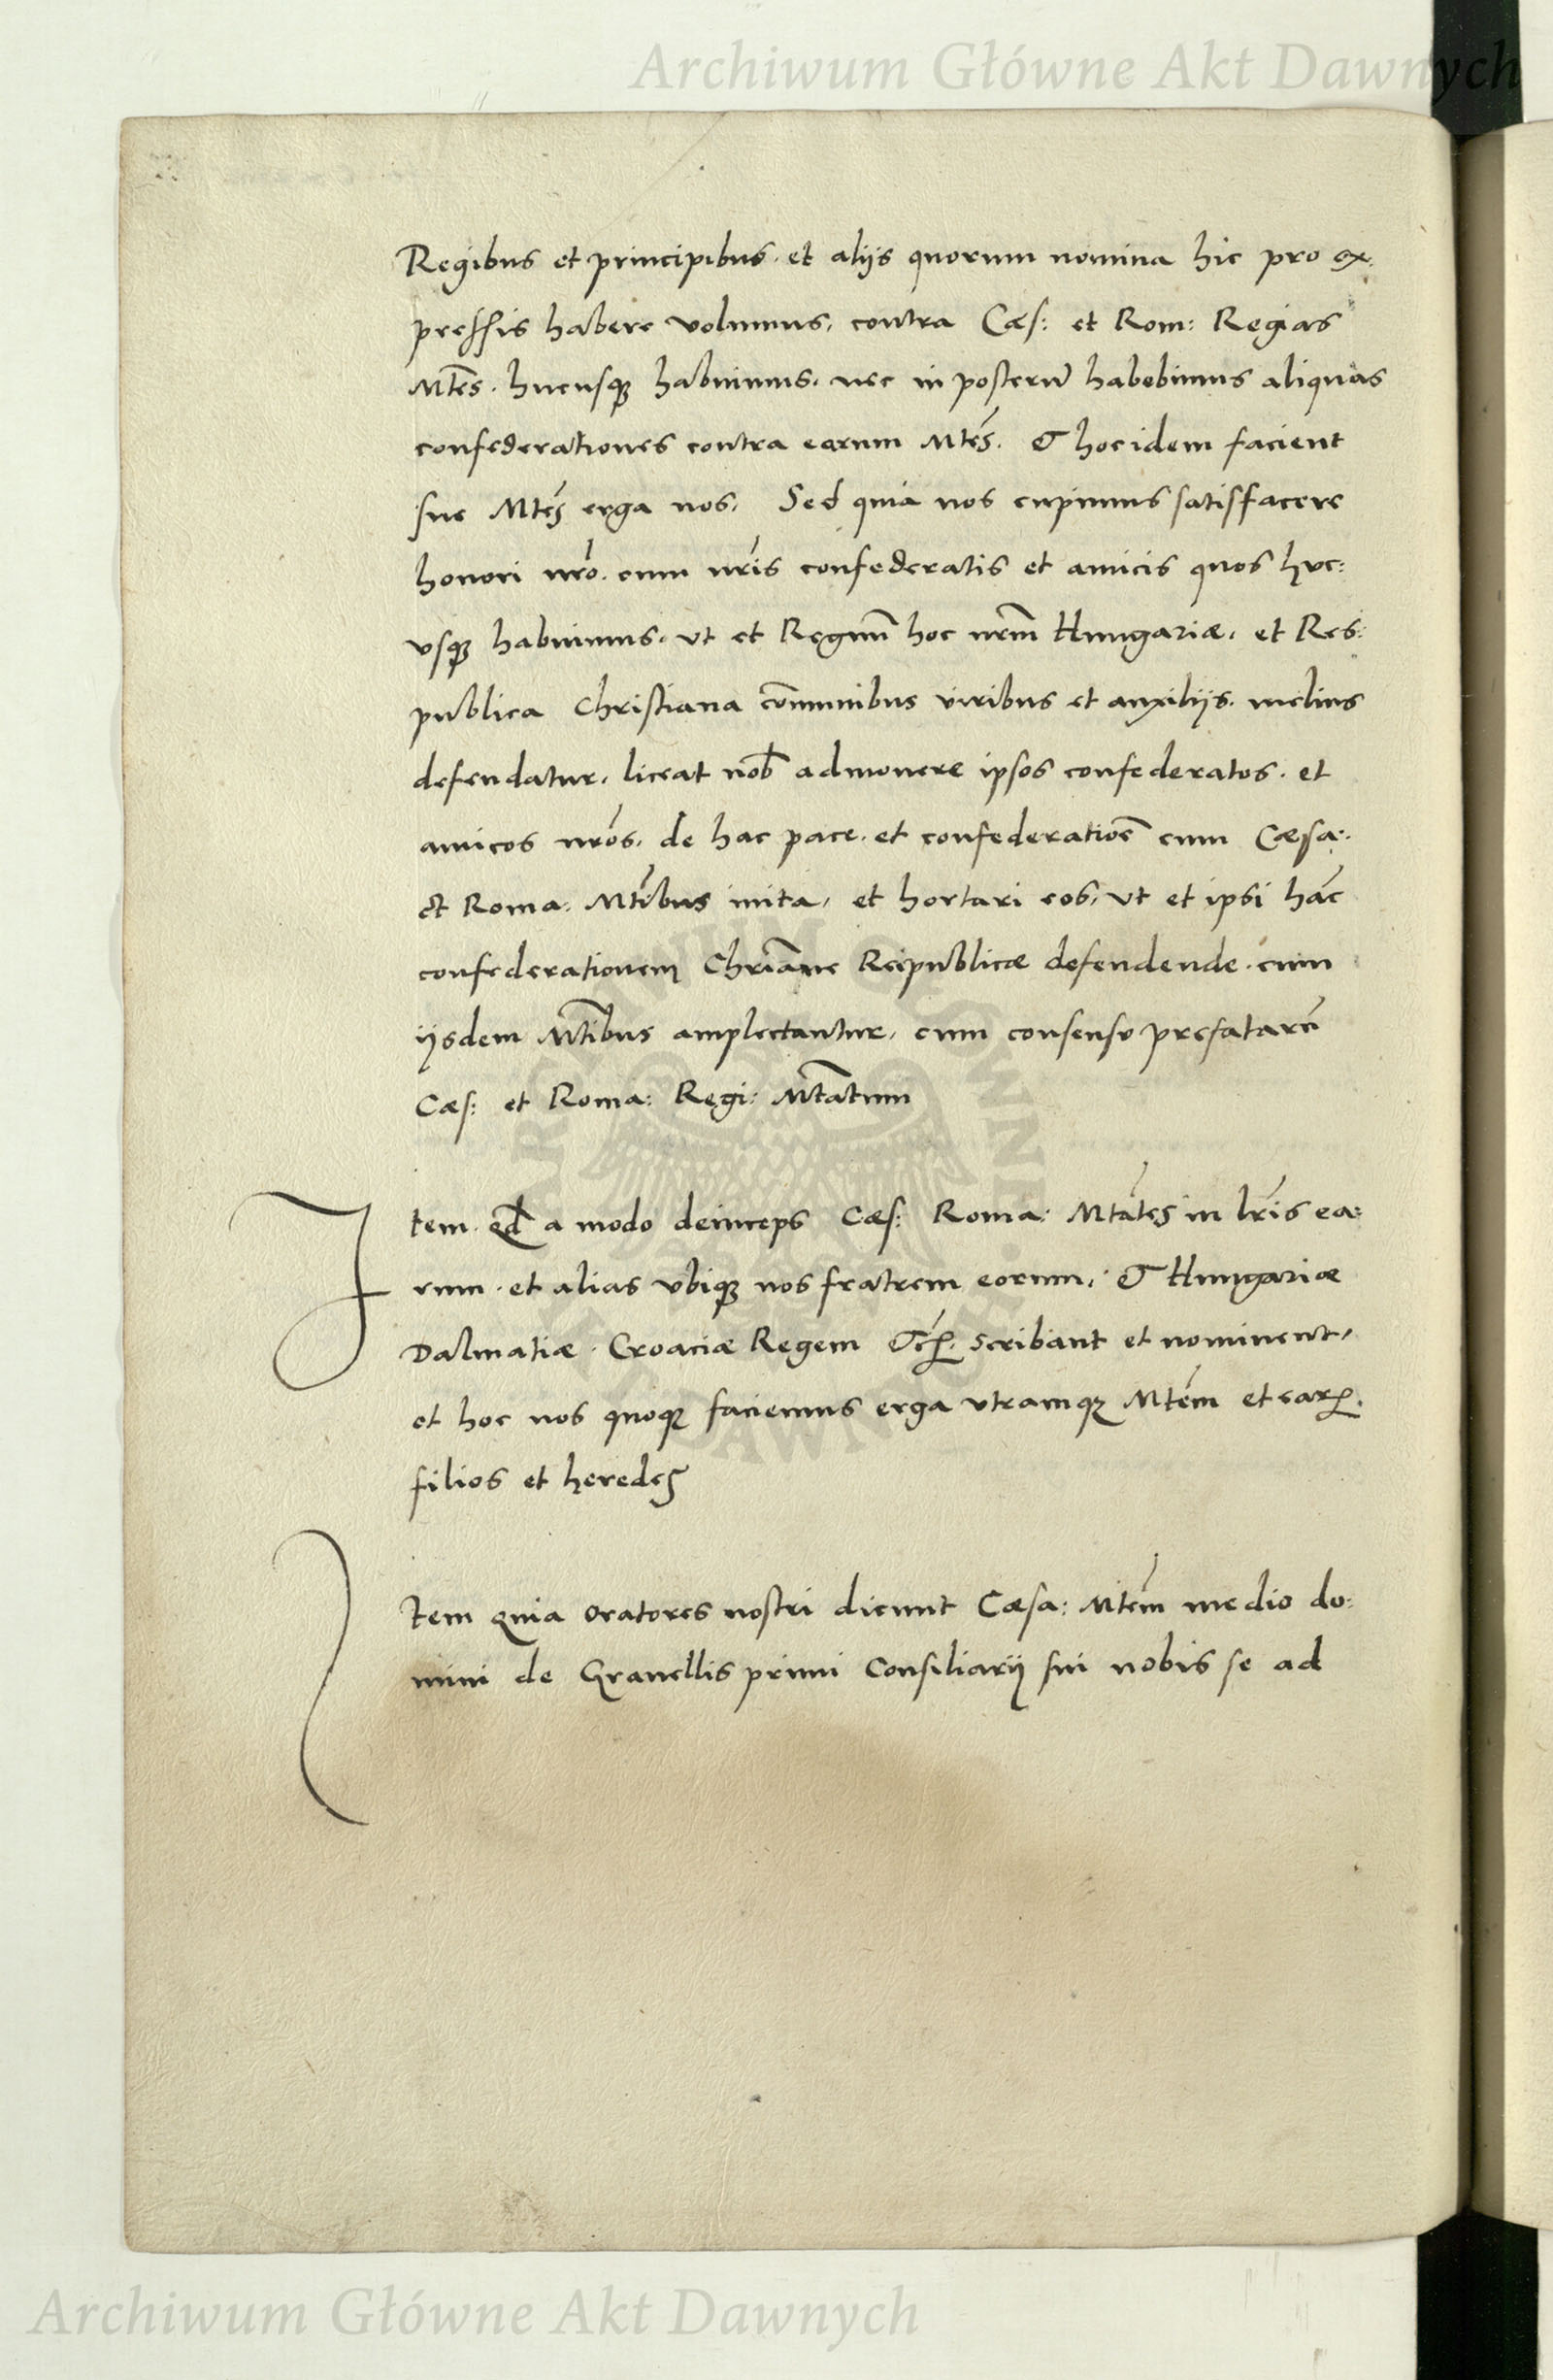 Archiwum Główne Akt Dawnych
Regibus et principibus. et alijs quorum nomina hic pro ex:
pressis habere volumus, contra Cæs: et Rom: Regias
Mtes. hucusqꝫ habuimus. nec in posterū habebimus aliquas
confederationes contra earum Mtes̄. & hoc idem facient
sue Mtes̄ erga nos. Sed quia nos cupimus satisfacere
honori nr̄o. cum nr̄is confederatis et amicis quos huc:
vsqꝫ habuimus. vt et Regnū hoc nr̄m Hungariæ. et Res:
publica Christiana cōmunibus viribus et auxilijs. melius
defendatur. liceat nob̄ admonere ipsos confederatos. et
amicos nr̄os. de hac pace. et confederatiōe cum Cæsa:
et Roma: Mtībus inita, et hortari eos, vt et ipsi hāc
confederationem Chrīane Reipublicæ defendende. cum
ijsdem Mtībus amplectantur, cum consensu prefatarū
Cæs: et Roma: Regi: Mtātum
Item. qd̄ a modo deinceps Cæs: Roma: Mtātes in lr̄is ea:
rum. et alias vbiqꝫ nos fratrem eorum, & Hungariæ
Dalmatiæ. Croaciæ Regem &cꝝ. scribant et nominent,
et hoc nos quoqꝫ faciemus erga vtramqꝫ Mtēm et earꝝ.
filios et heredes
Item quia oratores nostri dicunt Cæsa: Mtēm medio do:
mini de Granellis primi Consiliarij sui nobis se ad
Archiwum Główne Akt Dawnych